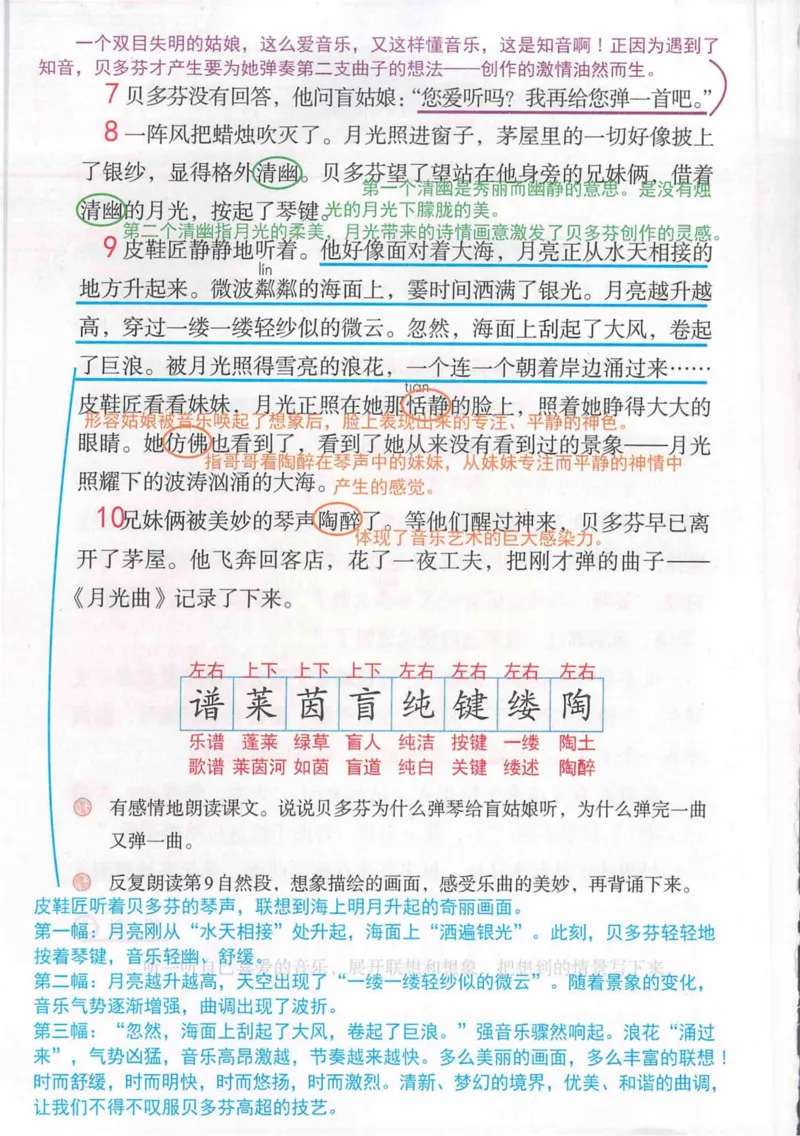 一个双目失明的姑娘，这么爱音乐，又这样懂音乐，这是知音啊！正因为遇到了
知音，贝多芬才产生要为她弹奏第二支曲子的想法——创作的激情油然而生。
7 贝多芬没有回答，他问盲姑娘：“您爱听吗？我再给您弹一首吧。”
8 一阵风把蜡烛吹灭了。月光照进窗子，茅屋里的一切好像披上
了银纱，显得格外清幽。贝多芬望了望站在他身旁的兄妹俩，借着
第一个清幽是秀丽而幽静的意思。是没有烛
清幽的月光，按起了琴键。
光的月光下朦胧的美。
第二个清幽指月光的柔美，月光带来的诗情画意激发了贝多芬创作的灵感。
9 皮鞋匠静静地听着。他好像面对着大海，月亮正从水天相接的
lín
地方升起来。微波粼粼的海面上，霎时间洒满了银光。月亮越升越
高，穿过一缕一缕轻纱似的微云。忽然，海面上刮起了大风，卷起
了巨浪。被月光照得雪亮的浪花，一个连一个朝着岸边涌过来……
tián
皮鞋匠看看妹妹，月光正照在她那恬静的脸上，照着她睁得大大的
形容姑娘被音乐唤起了想象后，脸上表现出来的专注、平静的神色。
眼睛。她仿佛也看到了，看到了她从来没有看到过的景象——月光
指哥哥看陶醉在琴声中的妹妹，从妹妹专注而平静的神情中
照耀下的波涛汹涌的大海。
产生的感觉。
10 兄妹俩被美妙的琴声陶醉了。等他们醒过神来，贝多芬早已离
体现了音乐艺术的巨大感染力。
开了茅屋。他飞奔回客店，花了一夜工夫，把刚才弹的曲子——
《月光曲》记录了下来。
左右 上下 上下 上下 左右 左右 左右 左右
谱 莱 茵 盲 纯 键 缕 陶
乐谱 蓬莱 绿草 盲人 纯洁 按键 一缕 陶土
歌谱 莱茵河 如茵 盲道 纯白 关键 缕述 陶醉
有感情地朗读课文。说说贝多芬为什么弹琴给盲姑娘听，为什么弹完一曲
又弹一曲。
反复朗读第9自然段，想象描绘的画面，感受乐曲的美妙，再背诵下来。
皮鞋匠听着贝多芬的琴声，联想到海上明月升起的奇丽画面。
第一幅：月亮刚从“水天相接”处升起，海面上“洒遍银光”。此刻，贝多芬轻轻地
按着琴键，音乐轻幽、舒缓。
听一听自己喜爱的音乐，展开联想和想象，把想到的情景写下来。
第二幅：月亮越升越高，天空出现了“一缕一缕轻纱似的微云”。随着景象的变化，
音乐气势逐渐增强，曲调出现了波折。
第三幅：“忽然，海面上刮起了大风，卷起了巨浪。”强音乐骤然响起。浪花“涌过
来”，气势凶猛，音乐高昂激越，节奏越来越快。多么美丽的画面，多么丰富的联想！
时而舒缓，时而明快，时而悠扬，时而激烈。清新、梦幻的境界，优美、和谐的曲调，
让我们不得不叹服贝多芬高超的技艺。